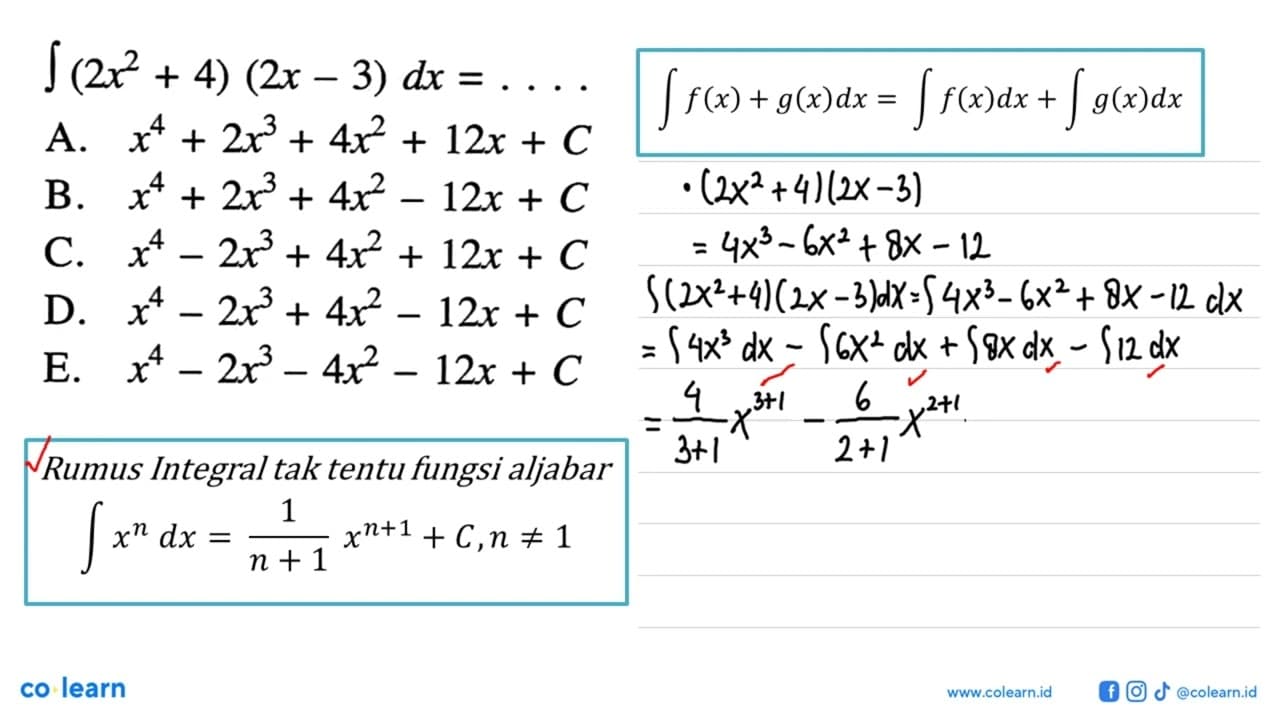 ∫ (2x² + 4) (2x − 3) dx = . . . .
A. x⁴ + 2x³ + 4x² + 12x + C
B. x⁴ + 2x³ + 4x² − 12x + C
C. x⁴ − 2x³ + 4x² + 12x + C
D. x⁴ − 2x³ + 4x² − 12x + C
E. x⁴ − 2x³ − 4x² − 12x + C
Rumus Integral tak tentu fungsi aljabar
∫ xⁿ dx = 1/(n + 1) xⁿ⁺¹ + C, n ≠ 1
∫ f(x) + g(x)dx = ∫ f(x)dx + ∫ g(x)dx
• (2x² + 4)(2x − 3)
= 4x³ − 6x² + 8x − 12
∫(2x²+4)(2x−3)dx = ∫4x³ − 6x² + 8x − 12 dx
= ∫4x³ dx − ∫6x² dx + ∫8x dx − ∫12 dx
= 4/(3+1) x³⁺¹ − 6/(2+1) x²⁺¹
co learn
www.colearn.id
@colearn.id